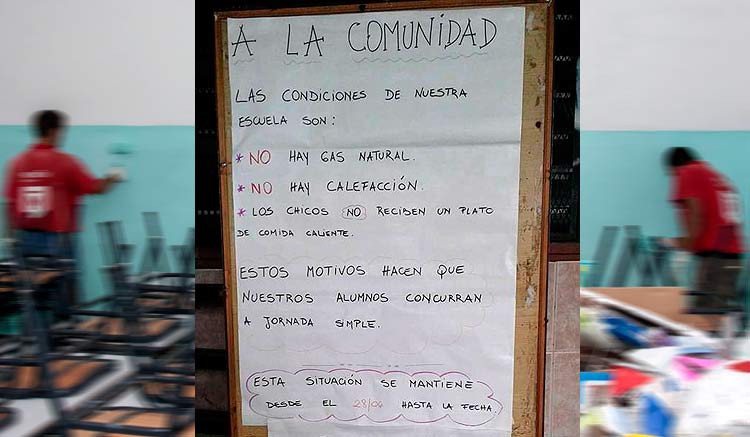 A LA COMUNIDAD
LAS CONDICIONES DE NUESTRA
ESCUELA SON:
* NO HAY GAS NATURAL.
* NO HAY CALEFACCIÓN.
* LOS CHICOS NO RECIBEN UN PLATO
DE COMIDA CALIENTE.
ESTOS MOTIVOS HACEN QUE
NUESTROS ALUMNOS CONCURRAN
A JORNADA SIMPLE.
ESTA SITUACIÓN SE MANTIENE
DESDE EL 28/04 HASTA LA FECHA